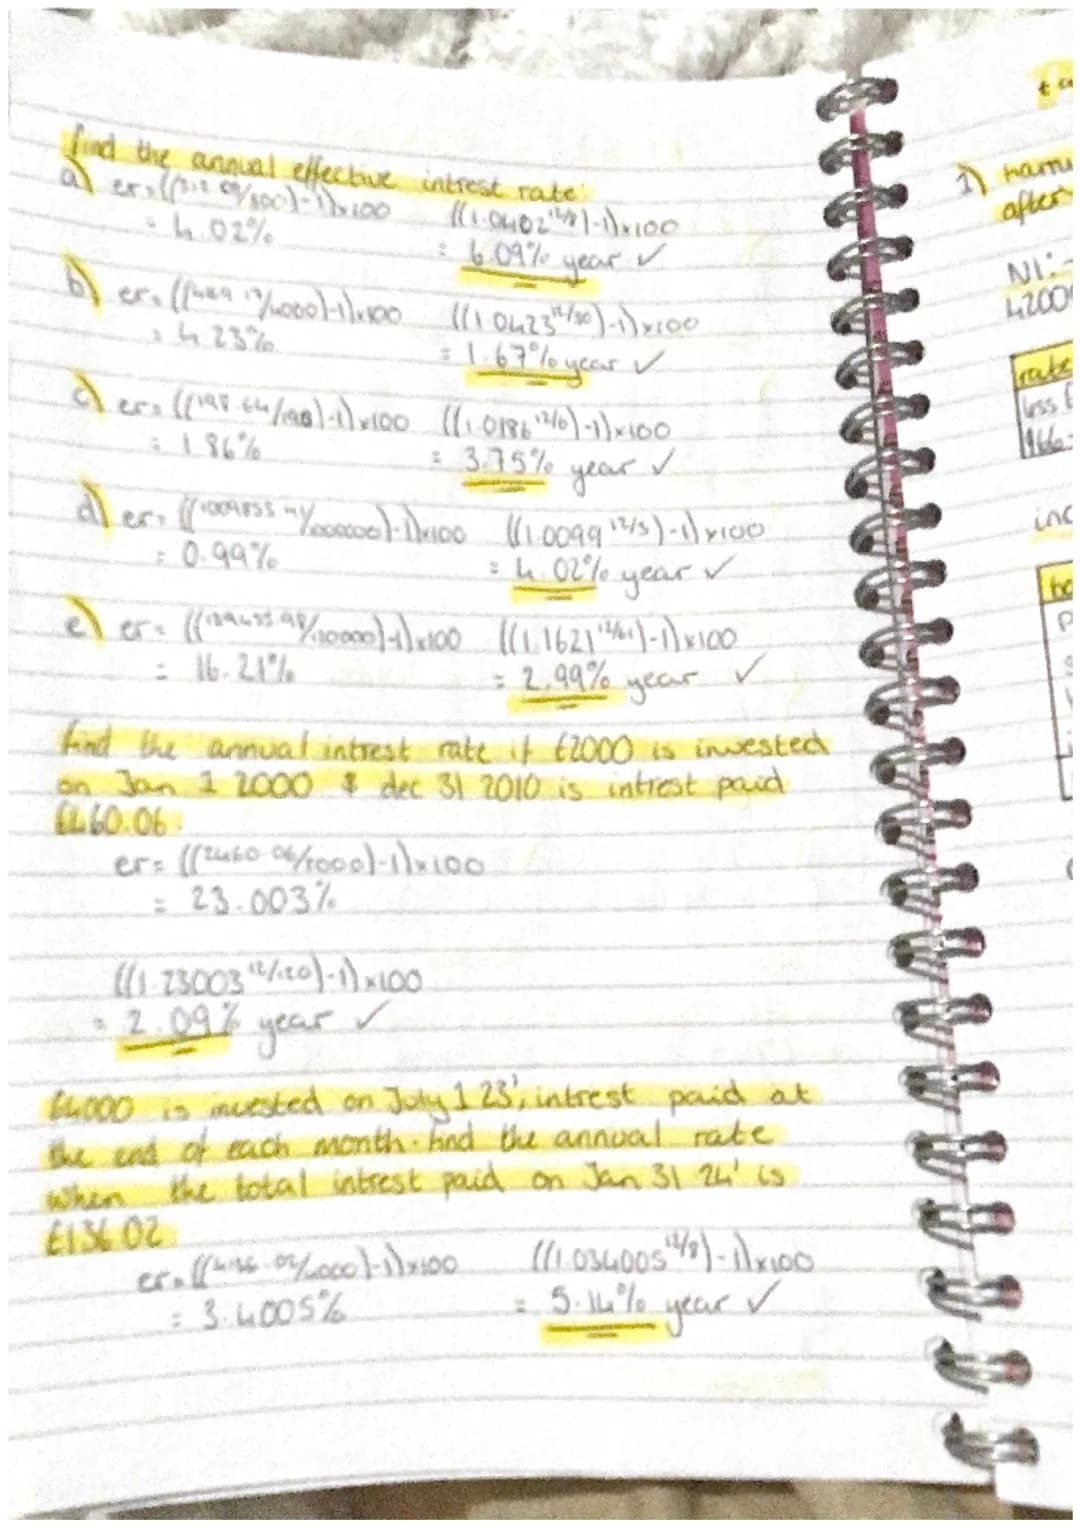 find the annual effective intrest rate:
a) er= /800)-1)x100 ((1.0402^12/8)-1)x100
= 4.02% = 6.09% year ✓
b) er= /4000)-1)x100 ((1.0423^12/30)-1)x100
= 4.23% = 1.67% year ✓
c) er= /198)-1)x100 ((1.0186^12/6)-1)x100
= 1.86% = 3.75% year ✓
d) er= ((1009855 /1000000)-1)x100 ((1.0099^12/3)-1)x100
= 0.99% = 4.02% year ✓
e) er= /120000)-1)x100 ((1.1621^12/61)-1)x100
= 16.21% = 2.99% year ✓
find the annual intrest rate if £2000 is invested
on Jan 1 2000 & dec 31 2010 is intrest paid
£460.06.
er= ((2460.06/2000)-1)x100
= 23.003%
((1.23003^12/120)-1)x100
= 2.09% year ✓
£4000 is invested on July 1 23', intrest paid at
the end of each month. find the annual rate
when the total intrest paid on Jan 31 24' is
£136.02
er= ((4136.02/4000)-1)x100 ((1.034005^12/8)-1)x100
= 3.4005% = 5.14% year ✓
1)
after
NI:
4200
rate
less
inc